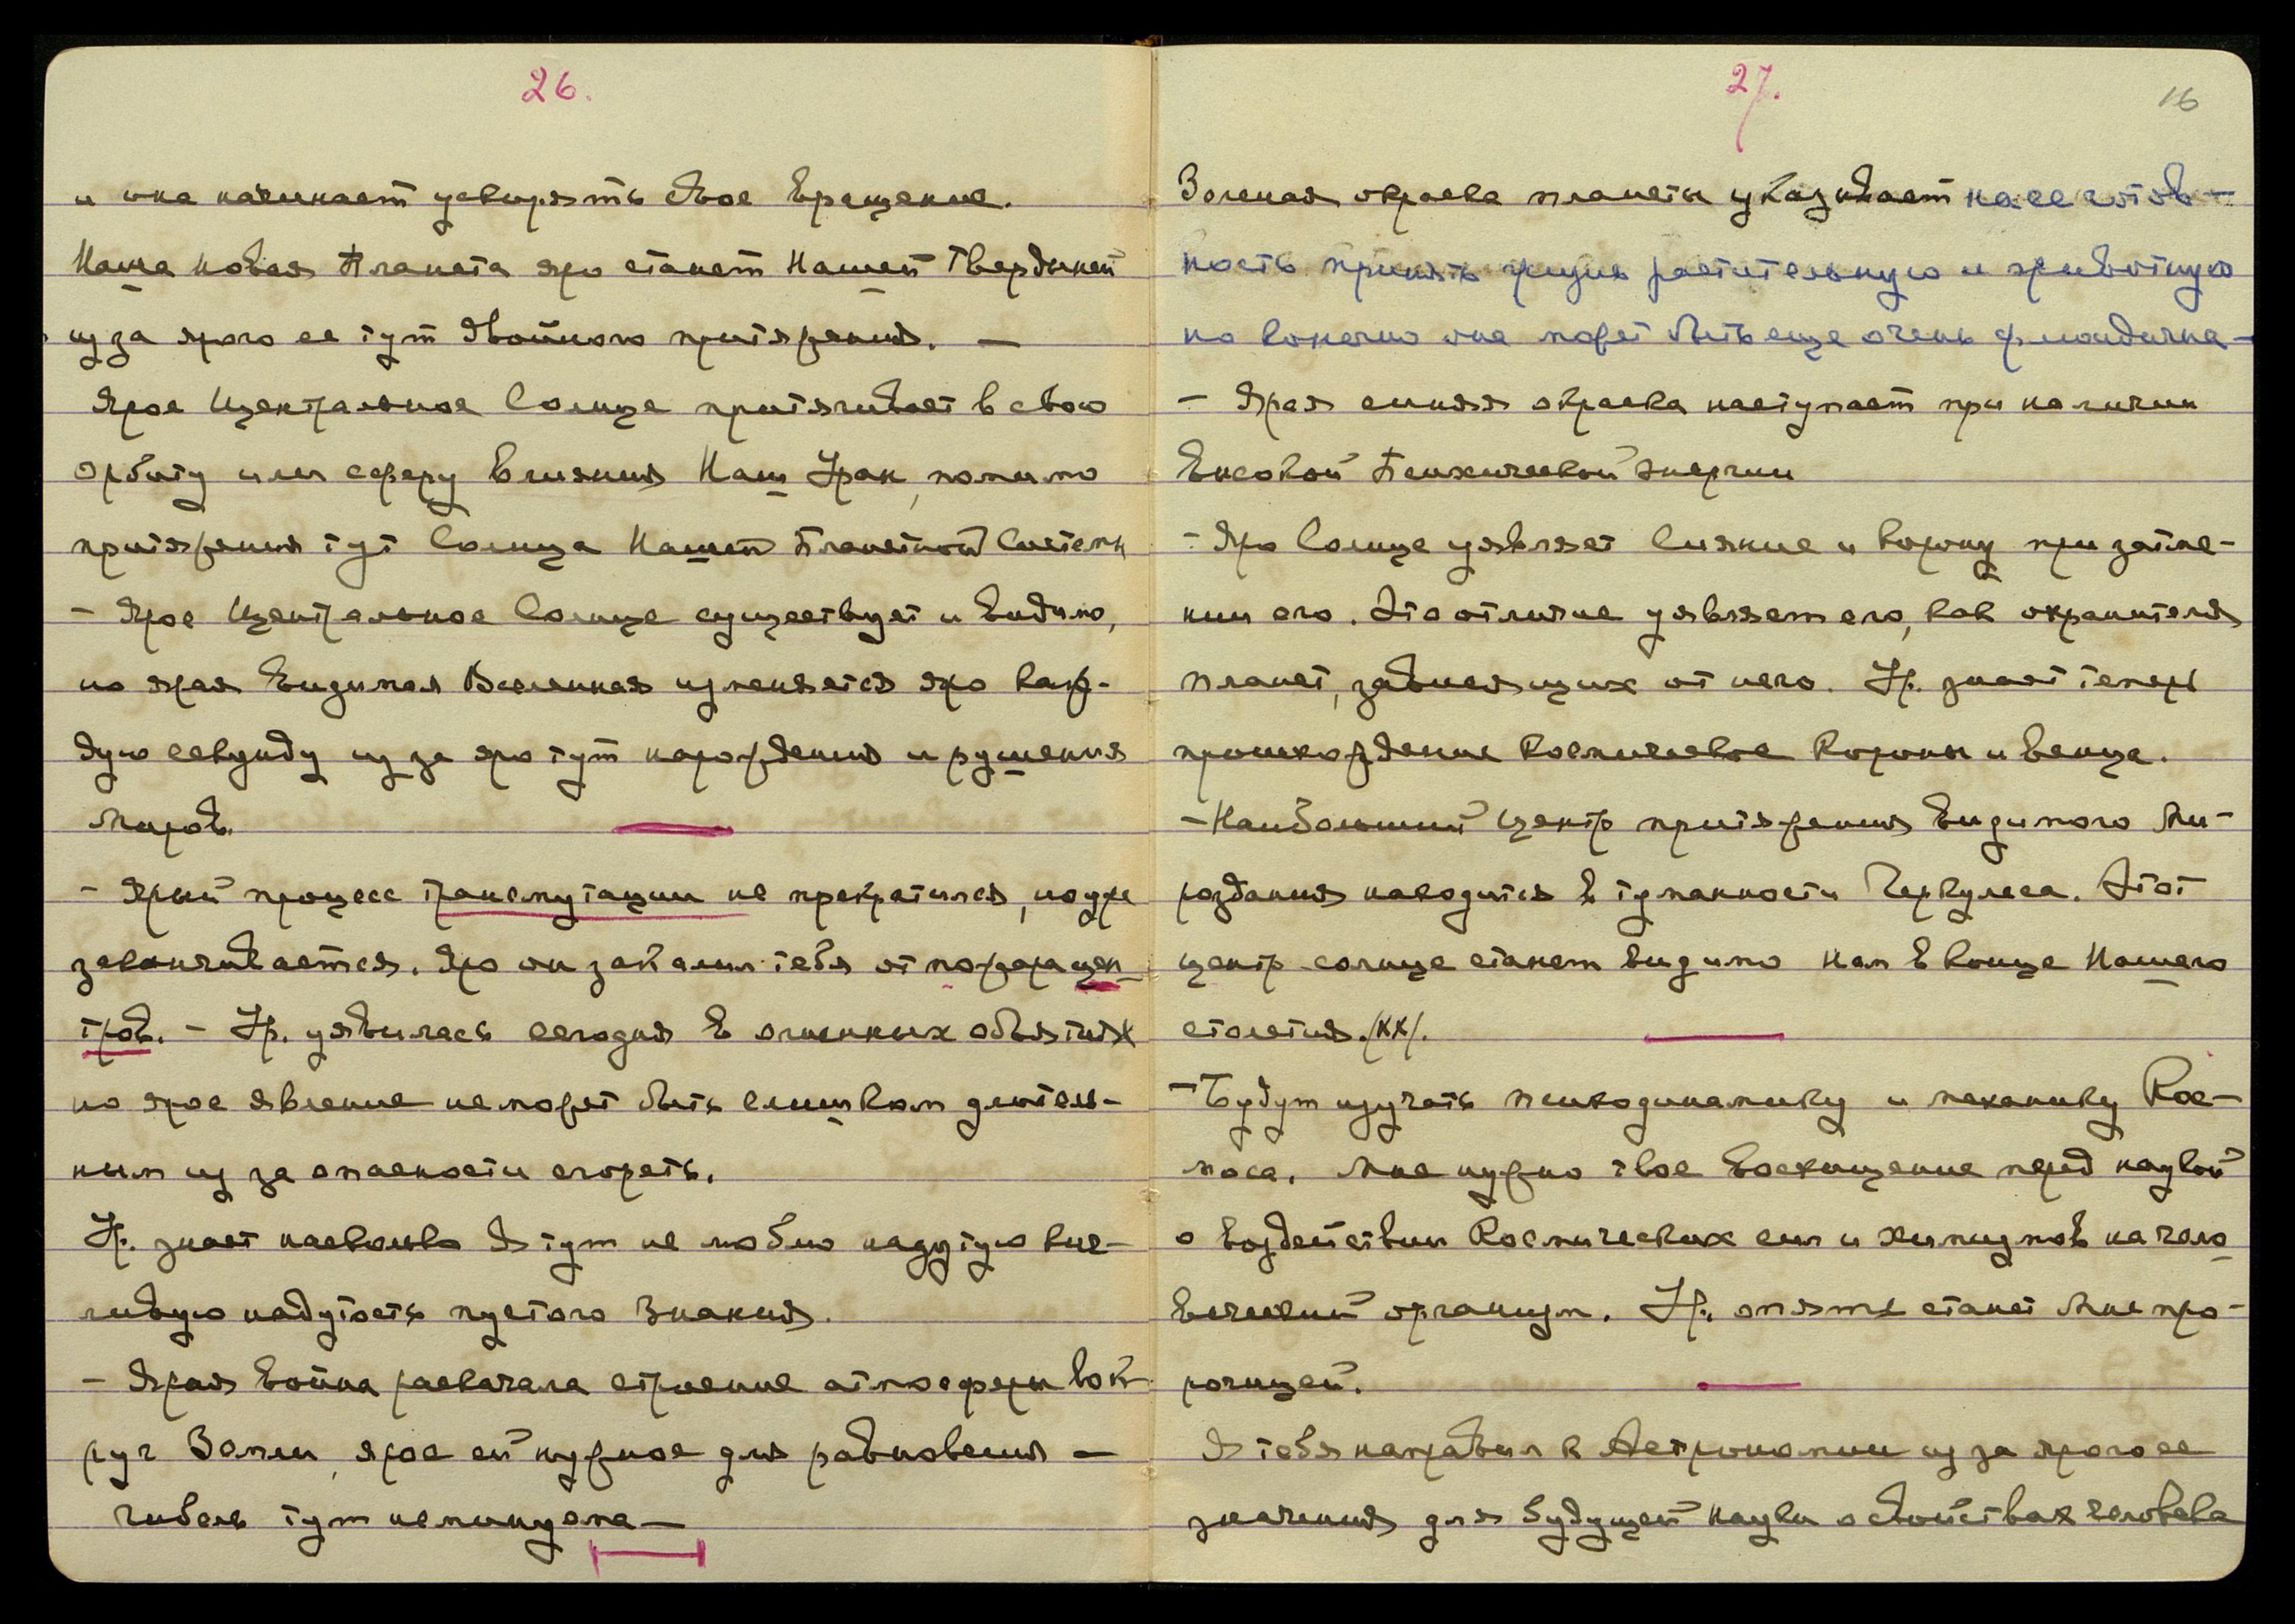 26.
и она начинает ускорять свое Вращение.
Наша Новая Планета яро станет Нашей Твердыней
из за ярого ее тут двойного притяжения. —
Ярое Центральное Солнце притягивает в свою
орбиту или сферу Влияния Наш Уран, помимо
притяжения тут Солнца Нашей Планетной Системы
– Ярое Центральное Солнце существует и Видимо,
но ярая Видимая Вселенная изменяется яро каж-
дую секунду из за яро тут нарождения и рушения
Миров.
– Ярый процесс трансмутации не прекратился, но уже
заканчивается. Яро он закалил тебя от пожара цен-
тров. – Ур. уявилась сегодня в огненных объятиях
но ярое явление не может быть слишком длитель-
ным из за опасности сгореть.
Ур. знает насколько Я тут не люблю надутую кис-
ливую надутость пустого Знания.
– Ярая Война раскачала строение атмосферы вок-
руг Земли, ярое ей нужное для равновесия —
гибель тут неминуема —
27.
16
Зеленая окраска планеты указывает на ее готов-
ность принять жизнь растительную и животную
но конечно она может быть еще очень флюидична —
– Ярая синяя окраска наступает при наличии
Высокой Психической Энергии
– Яро Солнце уявляет Сияние и корону при затме-
нии его. Это отличие уявляет его, как охранителя
планет, зависящих от него. Ур. знает теперь
происхождение Космическое Короны и Венца.
– Наибольший центр притяжения Видимого Ми-
роздания находится в туманности Геркулеса. Этот
центр солнце станет видимо нам в конце Нашего
столетия./XX/.
– Будут изучать психодинамику и механику Кос-
моса. Мне нужно твое Восхищение перед наукой
о воздействии Космических сил и химизмов на чело
веческий организм. Ур. опять станет Мне про-
рочицей.
Я тебя направил к Астрономии из за ярого ее
значения для будущей Науки о свойствах человека